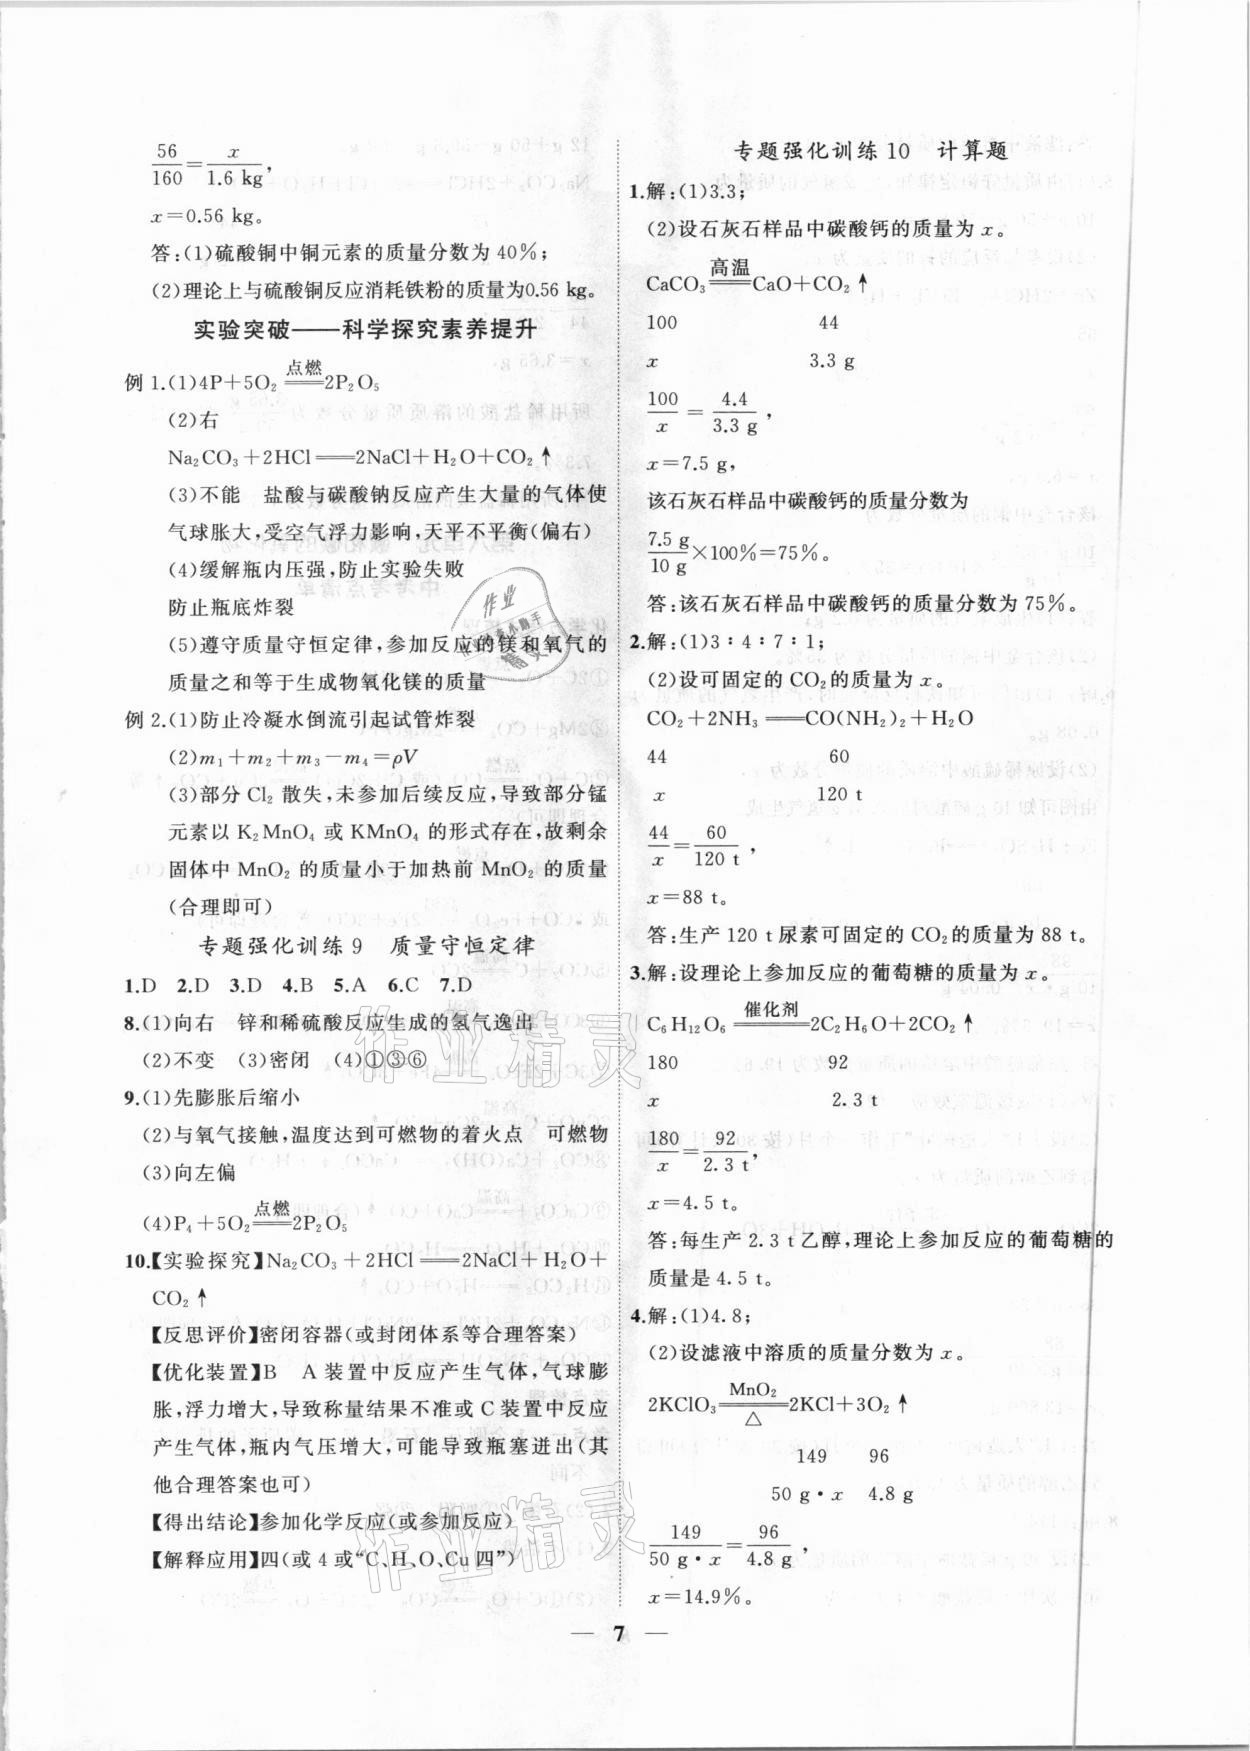 56/160=x/1.6 kg，
x=0.56 kg。
答:(1)硫酸铜中铜元素的质量分数为40%;
(2)理论上与硫酸铜反应消耗铁粉的质量为0.56 kg。
实验突破——科学探究素养提升
例1.(1)4P+5O₂ 点燃══ 2P₂O₅
(2)右
Na₂CO₃+2HCl══2NaCl+H₂O+CO₂↑
(3)不能 盐酸与碳酸钠反应产生大量的气体使
气球胀大,受空气浮力影响,天平不平衡(偏右)
(4)缓解瓶内压强,防止实验失败
防止瓶底炸裂
(5)遵守质量守恒定律,参加反应的镁和氧气的
质量之和等于生成物氧化镁的质量
例2.(1)防止冷凝水倒流引起试管炸裂
(2)m₁+m₂+m₃−m₄=ρV
(3)部分Cl₂散失,未参加后续反应,导致部分锰
元素以K₂MnO₄或KMnO₄的形式存在,故剩余
固体中MnO₂的质量小于加热前MnO₂的质量
(合理即可)
专题强化训练9 质量守恒定律
1.D 2.D 3.D 4.B 5.A 6.C 7.D
8.(1)向右 锌和稀硫酸反应生成的氢气逸出
(2)不变 (3)密闭 (4)①③⑥
9.(1)先膨胀后缩小
(2)与氧气接触,温度达到可燃物的着火点 可燃物
(3)向左偏
(4)P₄+5O₂ 点燃══ 2P₂O₅
10.【实验探究】Na₂CO₃+2HCl══2NaCl+H₂O+
CO₂↑
【反思评价】密闭容器(或封闭体系等合理答案)
【优化装置】B A装置中反应产生气体,气球膨
胀,浮力增大,导致称量结果不准或C装置中反应
产生气体,瓶内气压增大,可能导致瓶塞迸出(其
他合理答案也可)
【得出结论】参加化学反应(或参加反应)
【解释应用】四(或4或“C、H、O、Cu四”)
专题强化训练10 计算题
1.解:(1)3.3;
(2)设石灰石样品中碳酸钙的质量为x。
CaCO₃ 高温══ CaO+CO₂↑
100 44
x 3.3 g
100/x = 4.4/3.3 g，
x=7.5 g,
该石灰石样品中碳酸钙的质量分数为
7.5 g/10 g×100%=75%。
答:该石灰石样品中碳酸钙的质量分数为75%。
2.解:(1)3∶4∶7∶1;
(2)设可固定的CO₂的质量为x。
CO₂+2NH₃══CO(NH₂)₂+H₂O
44 60
x 120 t
44/x=60/120 t，
x=88 t。
答:生产120 t尿素可固定的CO₂的质量为88 t。
3.解:设理论上参加反应的葡萄糖的质量为x。
C₆H₁₂O₆ 催化剂══ 2C₂H₆O+2CO₂↑
180 92
x 2.3 t
180/x=92/2.3 t，
x=4.5 t。
答:每生产2.3 t乙醇,理论上参加反应的葡萄糖的
质量是4.5 t。
4.解:(1)4.8;
(2)设滤液中溶质的质量分数为x。
2KClO₃ MnO₂══△ 2KCl+3O₂↑
149 96
50 g·x 4.8 g
149/50 g·x=96/4.8 g，
x=14.9%。
— 7 —
作业精灵
作业精灵